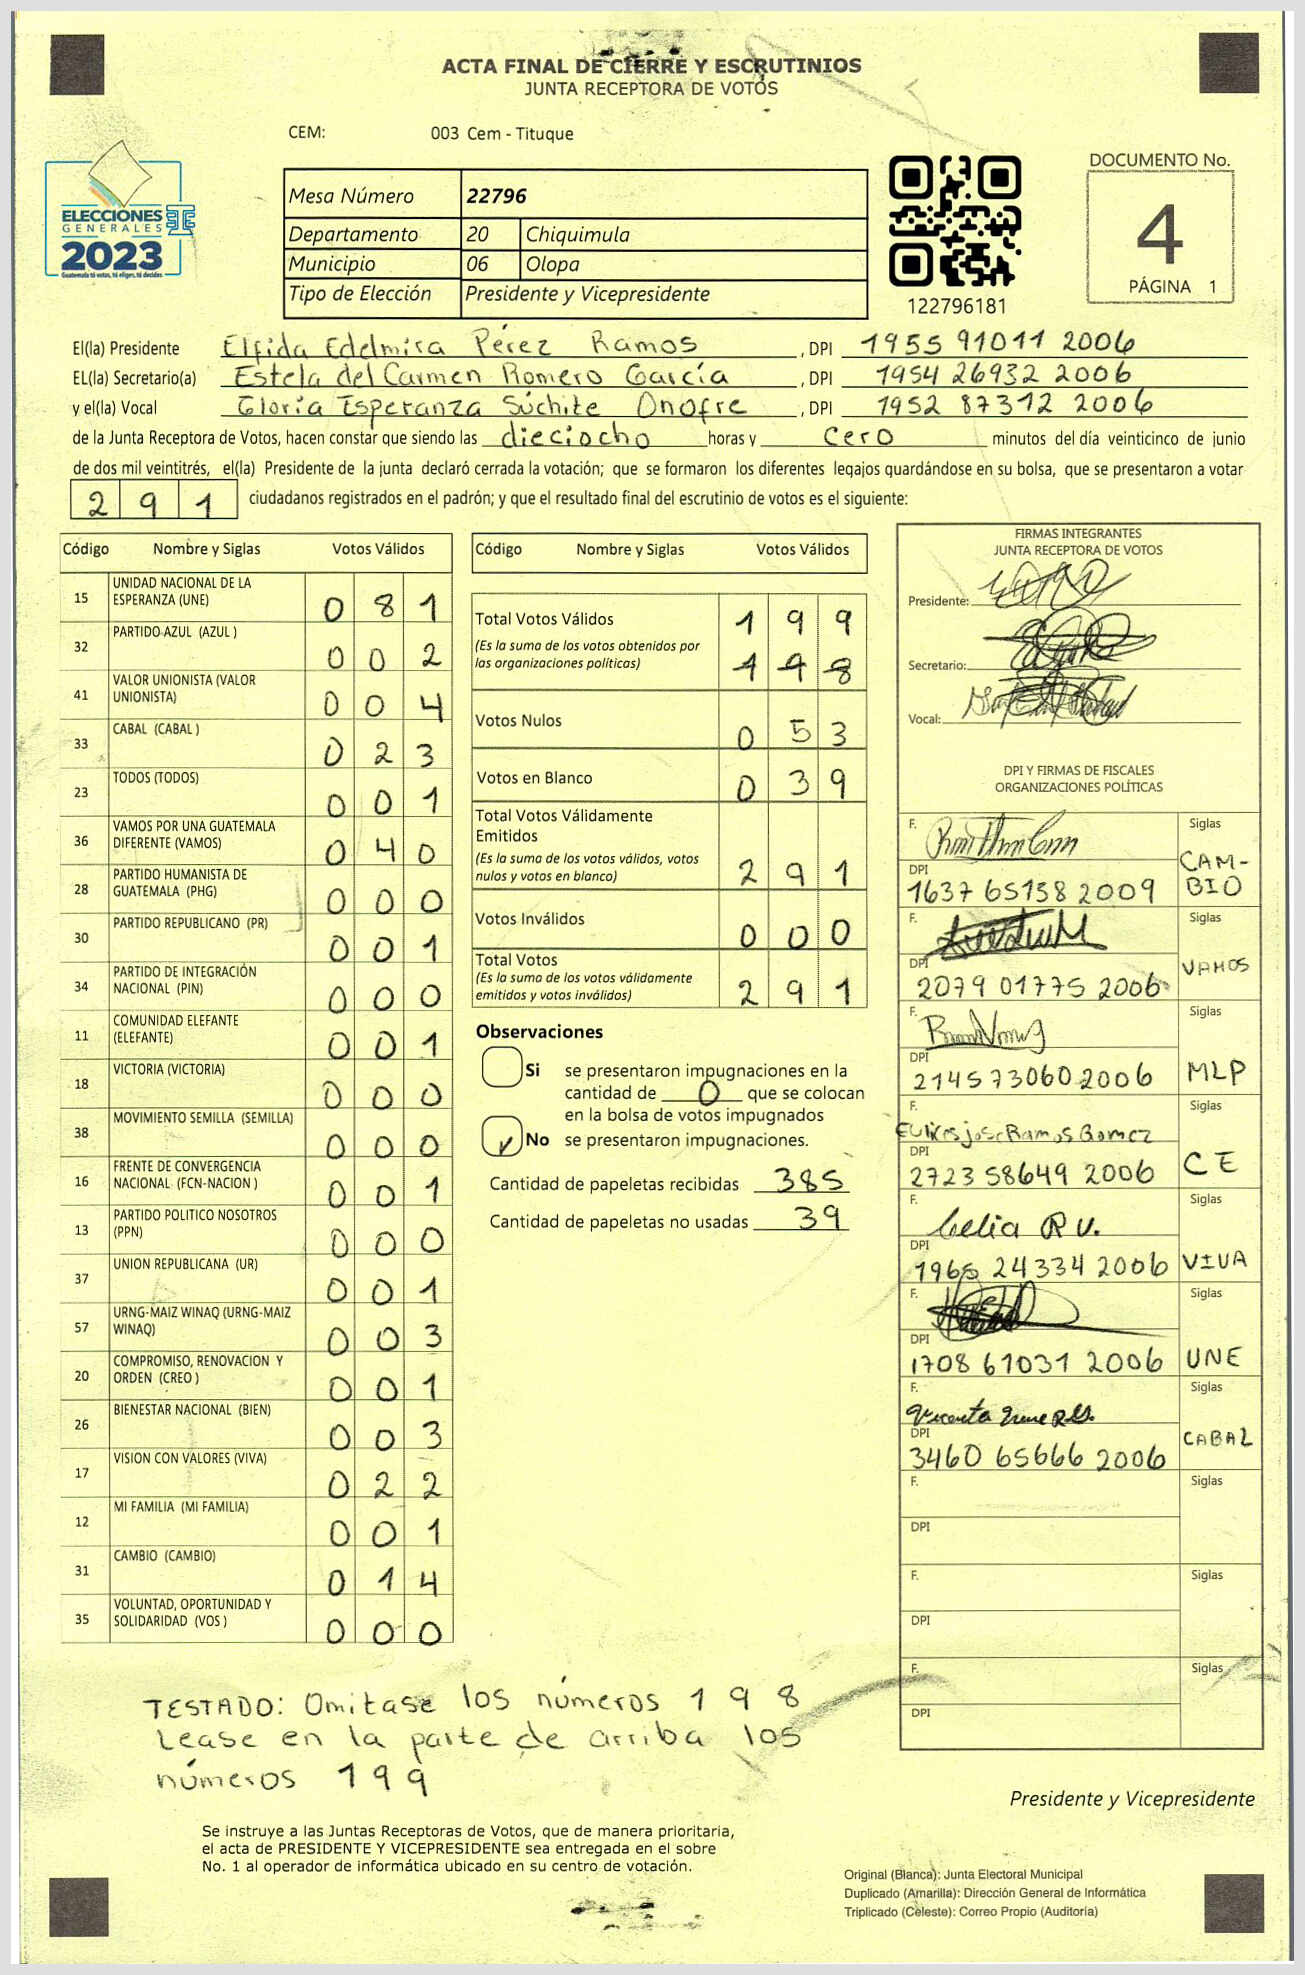 ACTA FINAL DE CIERRE Y ESCRUTINIOS
JUNTA RECEPTORA DE VOTOS
CEM: 003 Cem - Tituque
ELECCIONES
GENERALES
2023
Guatemala tú votas, tú eliges, tú decides
Mesa Número 22796
Departamento 20 Chiquimula
Municipio 06 Olopa
Tipo de Elección Presidente y Vicepresidente
122796181
DOCUMENTO No.
4
PÁGINA 1
El(la) Presidente Elfida Edelmira Pérez Ramos , DPI 1955 91011 2006
EL(la) Secretario(a) Estela del Carmen Romero García , DPI 1954 26932 2006
y el(la) Vocal Gloria Esperanza Súchite Onofre , DPI 1952 87312 2006
de la Junta Receptora de Votos, hacen constar que siendo las dieciocho horas y cero minutos del día veinticinco de junio
de dos mil veintitrés, el(la) Presidente de la junta declaró cerrada la votación; que se formaron los diferentes legajos quardándose en su bolsa, que se presentaron a votar
291 ciudadanos registrados en el padrón; y que el resultado final del escrutinio de votos es el siguiente:
Código Nombre y Siglas Votos Válidos
15 UNIDAD NACIONAL DE LA
ESPERANZA (UNE) 0 8 1
32 PARTIDO AZUL (AZUL ) 0 0 2
41 VALOR UNIONISTA (VALOR
UNIONISTA) 0 0 4
33 CABAL (CABAL ) 0 2 3
23 TODOS (TODOS) 0 0 1
36 VAMOS POR UNA GUATEMALA
DIFERENTE (VAMOS) 0 4 0
28 PARTIDO HUMANISTA DE
GUATEMALA (PHG) 0 0 0
30 PARTIDO REPUBLICANO (PR) 0 0 1
34 PARTIDO DE INTEGRACIÓN
NACIONAL (PIN) 0 0 0
11 COMUNIDAD ELEFANTE
(ELEFANTE) 0 0 1
18 VICTORIA (VICTORIA) 0 0 0
38 MOVIMIENTO SEMILLA (SEMILLA) 0 0 0
16 FRENTE DE CONVERGENCIA
NACIONAL (FCN-NACION ) 0 0 1
13 PARTIDO POLITICO NOSOTROS
(PPN) 0 0 0
37 UNION REPUBLICANA (UR) 0 0 1
57 URNG-MAIZ WINAQ (URNG-MAIZ
WINAQ) 0 0 3
20 COMPROMISO, RENOVACION Y
ORDEN (CREO ) 0 0 1
26 BIENESTAR NACIONAL (BIEN) 0 0 3
17 VISION CON VALORES (VIVA) 0 2 2
12 MI FAMILIA (MI FAMILIA) 0 0 1
31 CAMBIO (CAMBIO) 0 1 4
35 VOLUNTAD, OPORTUNIDAD Y
SOLIDARIDAD (VOS ) 0 0 0
Código Nombre y Siglas Votos Válidos
Total Votos Válidos 1 9 9
(Es la suma de los votos obtenidos por
las organizaciones políticas) 1 9 8
Votos Nulos 0 5 3
Votos en Blanco 0 3 9
Total Votos Válidamente
Emitidos
(Es la suma de los votos válidos, votos
nulos y votos en blanco) 2 9 1
Votos Inválidos 0 0 0
Total Votos
(Es la suma de los votos válidamente
emitidos y votos inválidos) 2 9 1
Observaciones
Si se presentaron impugnaciones en la
cantidad de 0 que se colocan
en la bolsa de votos impugnados
No se presentaron impugnaciones.
Cantidad de papeletas recibidas 385
Cantidad de papeletas no usadas 39
FIRMAS INTEGRANTES
JUNTA RECEPTORA DE VOTOS
Presidente:
Secretario:
Vocal:
DPI Y FIRMAS DE FISCALES
ORGANIZACIONES POLÍTICAS
F. Siglas
CAM-
BIO
DPI
1637 65158 2009
F. Siglas
VAMOS
DPI
2079 01775 2006
F. Siglas
MLP
DPI
2145 73060 2006
F. Siglas
Ramos Gomez
CE
DPI
2723 58649 2006
F. Siglas
Celia R V.
VIVA
DPI
1965 24334 2006
F. Siglas
UNE
DPI
1708 61031 2006
F. Siglas
CABAL
DPI
3460 65666 2006
F. Siglas
DPI
F. Siglas
DPI
F. Siglas
DPI
TESTADO: Omitase los números 1 9 8
Lease en la parte de arriba los
números 1 9 9
Presidente y Vicepresidente
Se instruye a las Juntas Receptoras de Votos, que de manera prioritaria,
el acta de PRESIDENTE Y VICEPRESIDENTE sea entregada en el sobre
No. 1 al operador de informática ubicado en su centro de votación.
Original (Blanca): Junta Electoral Municipal
Duplicado (Amarilla): Dirección General de Informática
Triplicado (Celeste): Correo Propio (Auditoría)